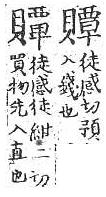 贉徒感切預
入錢也
贉徒感徒紺二切
買物先入直也